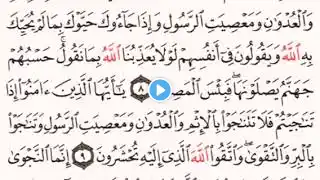 وَالْعُدْوَانِ وَمَعْصِيَتِ الرَّسُولِ وَإِذَا جَاءُوكَ حَيَّوْكَ بِمَا لَمْ يُحَيِّكَ
بِهِ اللَّهُ وَيَقُولُونَ فِي أَنفُسِهِمْ لَوْلَا يُعَذِّبُنَا اللَّهُ بِمَا نَقُولُ حَسْبُهُمْ
جَهَنَّمُ يَصْلَوْنَهَا فَبِئْسَ الْمَصِ ٨ يَا أَيُّهَا الَّذِينَ ءَامَنُوا إِذَا
تَنَاجَيْتُمْ فَلَا تَتَنَاجَوْا بِالْإِثْمِ وَالْعُدْوَانِ وَمَعْصِيَتِ الرَّسُولِ وَتَنَاجَوْا
بِالْبِرِّ وَالتَّقْوَى وَاتَّقُوا اللَّهَ الَّذِي إِلَيْهِ تُحْشَرُونَ ٩ إِنَّمَا النَّجْوَى